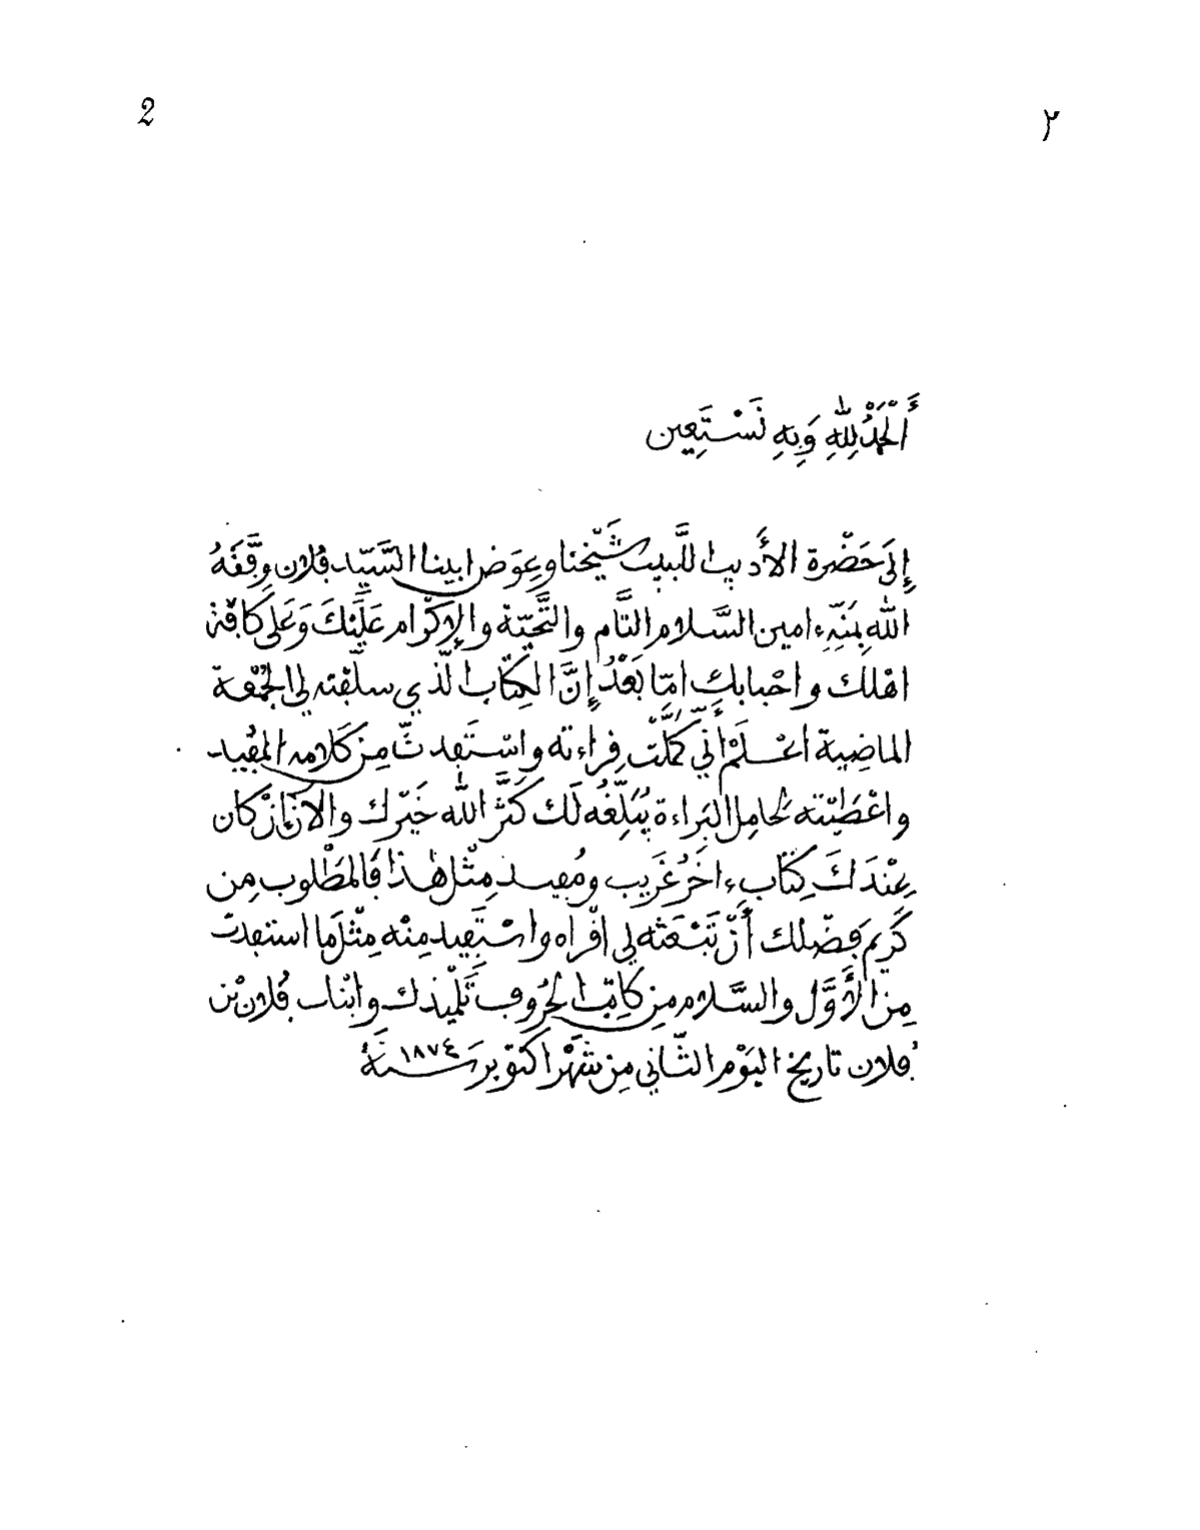 2
٢
أَلْحَمْدُ لِلّٰهِ وَبِهِ نَسْتَعِين
إِلَى حَضْرة الأَديب اللَّبيب شَيْخنا وعِوَض ابينا السَّيّد فُلان وفَّقَهُ
اللّه بِمَنِّهِ ءامين السَّلام التَّام والتَّحِيّة والإكْرام عَلَيْكَ وَعَلى كافّة
اهْلك واحْبابك امّا بَعْدُ إِنَّ الكِتاب الّذي سلّفته لي الجُمْعة
الماضِية اعْلَمْ أَنّي كَمَّلْت قِراءته واسْتَفدتُّ مِن كَلامه المُفيد
واعْطَيْته لحامِل البَراءة يُبَلِّغُه لَك كَثَّرَ اللّه خَيْرك والآن إنْ كان
عِنْدَكَ كِتاب ءاخَرُ غَريب ومُفيد مِثْل هٰذا فَالمَطْلوب مِن
كَريم فَضْلك أَنْ تَبْعَثه لي اقْراه واسْتَفِيد مِنْه مِثْلَما استفدتّ
مِن الأَوَّل والسَّلام مِن كاتِب الحُرُوف تَلْميذك وابْنك فُلان بْن
فُلان تاريخ اليَوْم الثّاني مِن شَهْر اكتوبر سَنَةُ ١٨٧٤